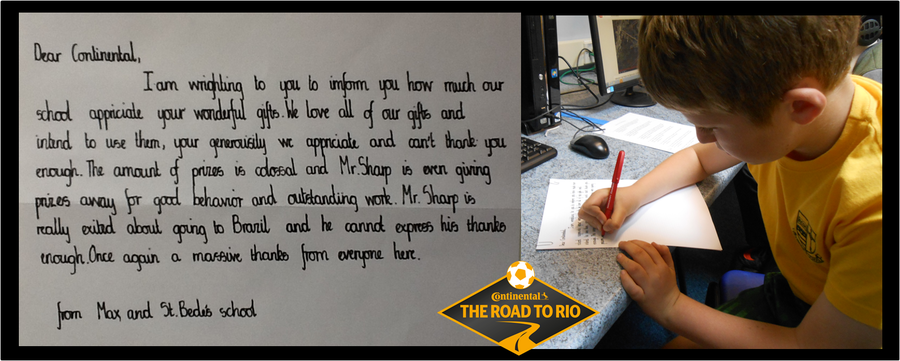 Dear Continental,
I am wrighting to you to imform you how much our
school appriciate your wonderful gifts. We love all of our gifts and
intend to use them, your generousitly we appriciate and can't thank you
enough. The amount of prizes is colossal and Mr.Sharp is even giving
prizes away for good behavior and outstanding work. Mr.Sharp is
really exited about going to Brazil and he cannot express his thanks
enough. Once again a massive thanks from everyone here.
from Max and St.Bede's school
Continental
THE ROAD TO RIO